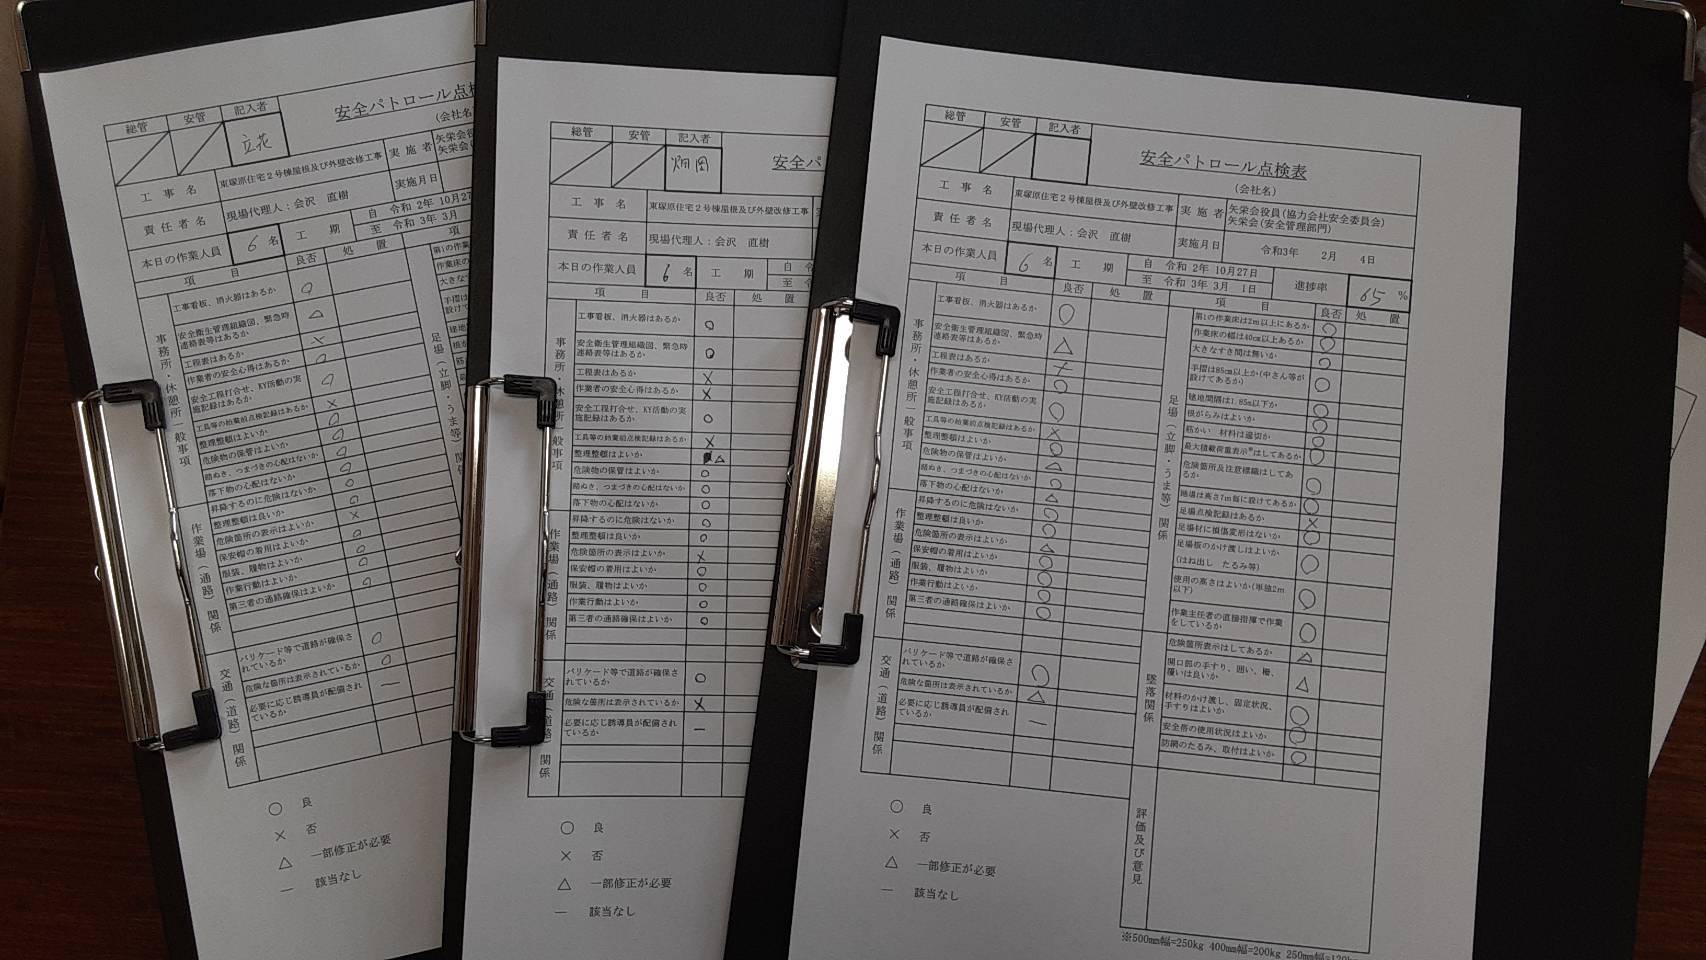 総管 安管 記入者
立花
安全パトロール点検
(会社名
工事名 東塚原住宅2号棟屋根及び外壁改修工事 実施者 矢栄会役
矢栄会
責任者名 現場代理人：会沢 直樹 実施月日
本日の作業人員 6名 工期 自 令和 2年 10月27
至 令和 3年 3月
項目 良否 処置 項
事務所・休憩所 一般事項
工事看板、消火器はあるか ○
安全衛生管理組織図、緊急時
連絡表等はあるか △
工程表はあるか ×
作業者の安全心得はあるか ○
安全工程打合せ、KY活動の実
施記録はあるか ○
工具等の始業前点検記録はあるか ×
整理整頓はよいか ○
危険物の保管はよいか ○
踏ぬき、つまづきの心配はないか ○
落下物の心配はないか ○
作業場(通路)関係
昇降するのに危険はないか ○
整理整頓は良いか ○
危険箇所の表示はよいか ×
保安帽の着用はよいか ○
服装、履物はよいか ○
作業行動はよいか ○
第三者の通路確保はよいか ○
交通(道路)関係
バリケード等で道路が確保さ
れているか ○
危険な箇所は表示されているか ○
必要に応じ誘導員が配備され
ているか ―
足場(立脚・うま等)関係
第1の作業
作業床の
大きなす
手摺は
設けて
○ 良
× 否
△ 一部修正が必要
― 該当なし
総管 安管 記入者
畑岡
安全パ
工事名 東塚原住宅2号棟屋根及び外壁改修工事
責任者名 現場代理人：会沢 直樹
本日の作業人員 6名 工期 自 令
至 令
項目 良否 処置
事務所・休憩所 一般事項
工事看板、消火器はあるか ○
安全衛生管理組織図、緊急時
連絡表等はあるか ○
工程表はあるか ×
作業者の安全心得はあるか ×
安全工程打合せ、KY活動の実
施記録はあるか ○
工具等の始業前点検記録はあるか ×
整理整頓はよいか △
危険物の保管はよいか ○
踏ぬき、つまづきの心配はないか ○
落下物の心配はないか ○
作業場(通路)関係
昇降するのに危険はないか ○
整理整頓は良いか ○
危険箇所の表示はよいか ×
保安帽の着用はよいか ○
服装、履物はよいか ○
作業行動はよいか ○
第三者の通路確保はよいか ○
交通(道路)関係
バリケード等で道路が確保さ
れているか ○
危険な箇所は表示されているか ×
必要に応じ誘導員が配備され
ているか ―
○ 良
× 否
△ 一部修正が必要
― 該当なし
総管 安管 記入者
安全パトロール点検表
(会社名)
工事名 東塚原住宅2号棟屋根及び外壁改修工事 実施者 矢栄会役員(協力会社安全委員会)
矢栄会(安全管理部門)
責任者名 現場代理人：会沢 直樹 実施月日 令和3年 2月 4日
本日の作業人員 6名 工期 自 令和 2年 10月27日
至 令和 3年 3月 1日 進捗率 65%
項目 良否 処置 項目 良否 処置
事務所・休憩所 一般事項
工事看板、消火器はあるか ○
安全衛生管理組織図、緊急時
連絡表等はあるか △
工程表はあるか ×
作業者の安全心得はあるか ○
安全工程打合せ、KY活動の実
施記録はあるか ○
工具等の始業前点検記録はあるか ×
整理整頓はよいか ○
危険物の保管はよいか △
踏ぬき、つまづきの心配はないか ○
落下物の心配はないか △
作業場(通路)関係
昇降するのに危険はないか ○
整理整頓は良いか ○
危険箇所の表示はよいか △
保安帽の着用はよいか ○
服装、履物はよいか ○
作業行動はよいか ○
第三者の通路確保はよいか ○
交通(道路)関係
バリケード等で道路が確保さ
れているか ○
危険な箇所は表示されているか △
必要に応じ誘導員が配備され
ているか ―
足場(立脚・うま等)関係
第1の作業床は2m以上にあるか ○
作業床の幅は40cm以上あるか ○
大きなすき間は無いか ○
手摺は85cm以上か(中さん等が
設けてあるか) ○
建地間隔は1.85m以下か ○
根がらみはよいか ○
筋かい 材料は適切か ○
最大積載荷重表示※はしてあるか ○
危険箇所及注意標識はしてあ
るか ○
踊場は高さ7m毎に設けてあるか ○
足場点検記録はあるか ×
足場材に損傷変形はないか ○
足場板のかけ渡しはよいか
(はね出し たるみ等) ○
使用の高さはよいか(単独2m
以下) ○
作業主任者の直接指揮で作業
をしているか ○
墜落関係
危険箇所表示はしてあるか △
開口部の手すり、囲い、柵、
覆いは良いか △
材料のかけ渡し、固定状況、
手すりはよいか ○
安全帯の使用状況はよいか ○
防網のたるみ、取付はよいか ○
評価及び意見
○ 良
× 否
△ 一部修正が必要
― 該当なし
※500mm幅=250kg 400mm幅=200kg 250mm幅=120k